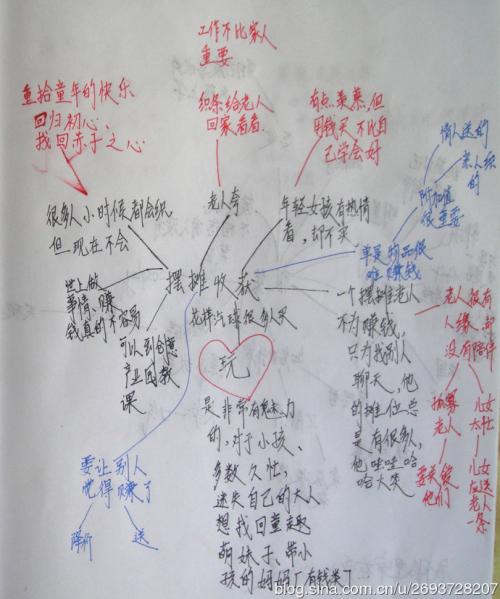 工作不比家人
重要
重拾童年的快乐
回归初心
找回赤子之心
织条给老人
回家看看
有点羡慕,但
用钱买不比自
己学会好
情人送的
亲人织
的
附加值
很重要
很多人小时候都会织
但现在不会
老人夸
年轻女孩有热情
者,却不买
单是物品很
难赚钱
世上做
事情、赚
钱真的不容易
摆摊收获
花样汽球很多人买
可以到创意
产业园教
课
玩
是非常有魅力
的,对于小孩、
多数久忙,
迷失自己的大人
想找回童趣
萌妹子、带小
孩的妈妈
一个摆摊老人
不为赚钱,
只为找别人
聊天,他
的摊位总
是有很多人,
他哇哇哈
哈大笑
老人很有
人缘,却
没有陪伴
孤寡
老人
儿女
太忙
要关爱
他们
儿女
应送
老人
一条
要让别人
觉得赚了
降价
送
blog.sina.com.cn/u/2693728207